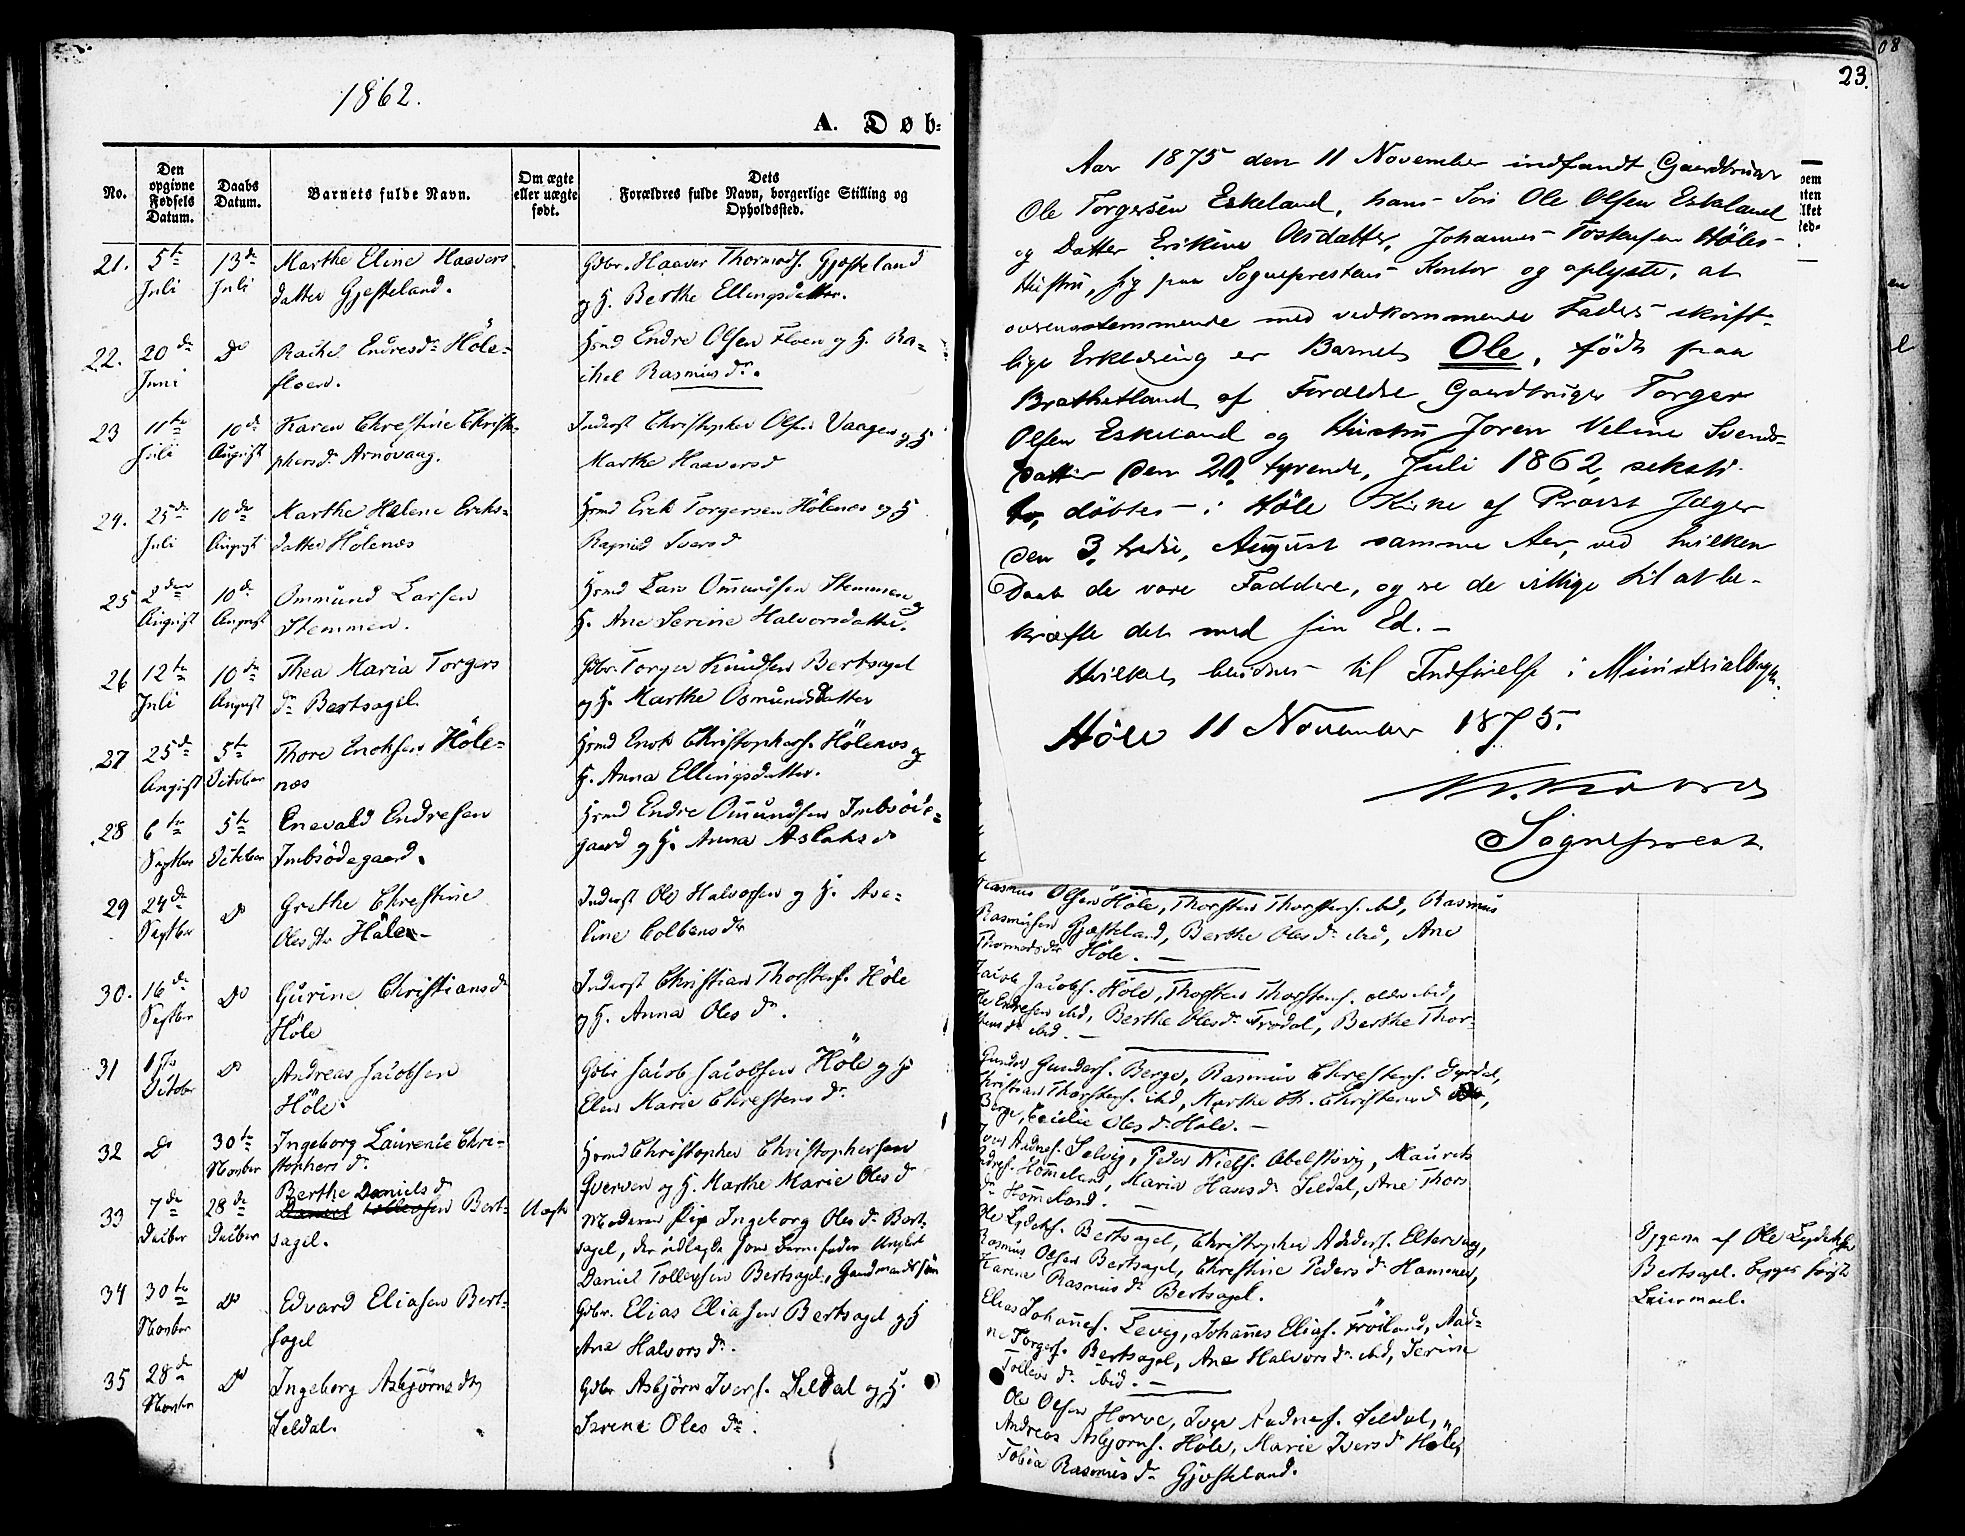 1862.
A. Døb-
No.
Den opgivne Fødsels Datum.
Daabs Datum.
Barnets fulde Navn.
Om ægte eller uægte født.
Dets Forældres fulde Navn, borgerlige Stilling og Opholdssted.
21. 5te Juli 13de Juli Marthe Eline Haavers-
datter Gjesteland.
Gdbr. Haaver Thormods. Gjesteland
og H. Berthe Ellingsdatter.
22. 20de Juni Do Rachel Endresdr Höle-
floen.
Hsmd Endre Olsen Floen og H. Ra-
chel Rasmusdr.
23 11te Juli 10de August Karen Chrestine Christo-
phersdr Arnovaag.
Inderst Christopher Olsen Vaagen og H
Marthe Haaversd
24. 25de Juli 10de August Marthe Helene Eriks-
datter Hölenæs
Hsmd Erik Torgersen Hölenæs og H
Ragnid Iversd
25 2den August 10de August Ommund Larsen
Stemmen.
Hsmd Lars Ommundsen Stemmen og
H. Ane Serine Halvorsdatter.
26 12te Juli 10de August Thea Maria Torgers
dr Bertsagel.
Gdbr. Torger Knudsen Bertsagel
og H. Marthe Osmundsdatter
27 25de August 5te October Thore Enoksen Höle-
næs
Hsmd Enok Christophers. Hölenæs og
H. Anna Ellingsdatter.
28 6te Septbr 5te October Enevald Endresen
Imbsödegaard.
Hsmd Endre Ommundsen Imbsöde-
gaard og H. Anna Aslaksd
29 24de Septbr Do Grethe Chrestine
Olesdtr Höle
Inderst Ole Halvorsen og H. Ave-
line Colbensdr
30. 16de Septbr Do Gurine Christiansdr
Höle
Inderst Christian Thorstens. Höle
og H. Anna Olesdr.
31 1ste October Do Andreas Jacobsen
Höle.
Gdbr Jacob Jacobsen Höle og H
Elen Marie Chrestensdr
32 Do 30te Novbr Ingeborg Laurence Chri-
stophersdr.
Hsmd Christopher Christophersen
Qverven og H. Marthe Marie Olesdr
33 7de Decbr 28de Decbr Berthe Danielsdr
Daniel Tollevsen Bert-
sagel.
Uægte
Moderen Pige Ingeborg Olesdr Bert-
sagel, der udlagde som Barnefader Ungkarl
Daniel Tollevsen Bertsagel, Gaardmandssön
34 30te Novbr Do Edvard Eliasen Bert-
sagel
Gdbr. Elias Eliasen Bertsagel og H
Ane Halvorsdr.
35 28de Novbr Do Ingeborg Asbjörnsdtr
Seldal.
Gdbr Asbjörn Ivers. Seldal og H.
Serene Olesdr.
23.
Aar 1875 den 11 November indfandt Gaardbruger
Ole Torgersen Eskeland, hans Søn Ole Olsen Eskeland
og Datter Erikine Olsdatter, Johannes Tostensen Höles
Hustru, sig paa Sogneprestens Kontor og oplyste, at
overensstemmende med vedkommende Faders skrift-
lige Erklæring er Barnet Ole, født paa
Brathetland af Forældre Gaardbruger Torger
Olsen Eskeland og Hustru Joren Veline Svends-
datter den 20, tyvende, Juli 1862, seksti
to, döbtes i Höle Kirke af Provst Jæger
den 3, tredie, August samme Aar, ved hvilken
Daab de vare Faddere, og ere de villige til at be-
kræfte det med sin Ed. -
Hvilket bevidnes til Indførelse i Ministerialbogen.
Höle 11 November 1875.
Sogneprest
Rasmus Olsen Höle, Thorsten Thorstens. ibid, Rasmus
Rasmusen Gjesteland, Berthe Olesdr ibid, Ane
Thormodsdtr Höle. -
Jacob Jacobs. Höle, Thorsten Thorstens. ibid,
Ole Endresen ibid, Berthe Olesdr Frødal, Berthe Thor-
stensdr ibid. -
Gunder Gunders. Berge, Rasmus Chrestens. Dyrdal,
Christian Thorstens. ibid, Marthe Ch. Christensdr
Berge, Cecilie Olesdr Höle. -
Iver Aadnes. Selvig, Peder Niels. Obelstvig, Maurits
Hommeland, Maria Hansdr Seldal, Ane Thors
dr Hommeland. -
Ole Lydeks. Bertsagel, Christopher Elsevaag,
Rasmus Olsen Bertsagel, Chrestine Pedersdr Hammer,
Karena Rasmusdr Bertsagel.
Elias Johannes. Levig, Johannes Elias. Fröiland, Aad-
ne Torgers. Bertsagel, Ane Halvorsdr ibid, Serine
Tollevsdr ibid. -
Ole Olsen Horve, Iver Aadnes. Seldal,
Andreas Asbjørns. Höle, Marie Iversdr Höle,
Tobia Rasmusdr Gjesteland.
Opgave af Ole Lydeksen
Bertsagel. begges første
Leiermaal.